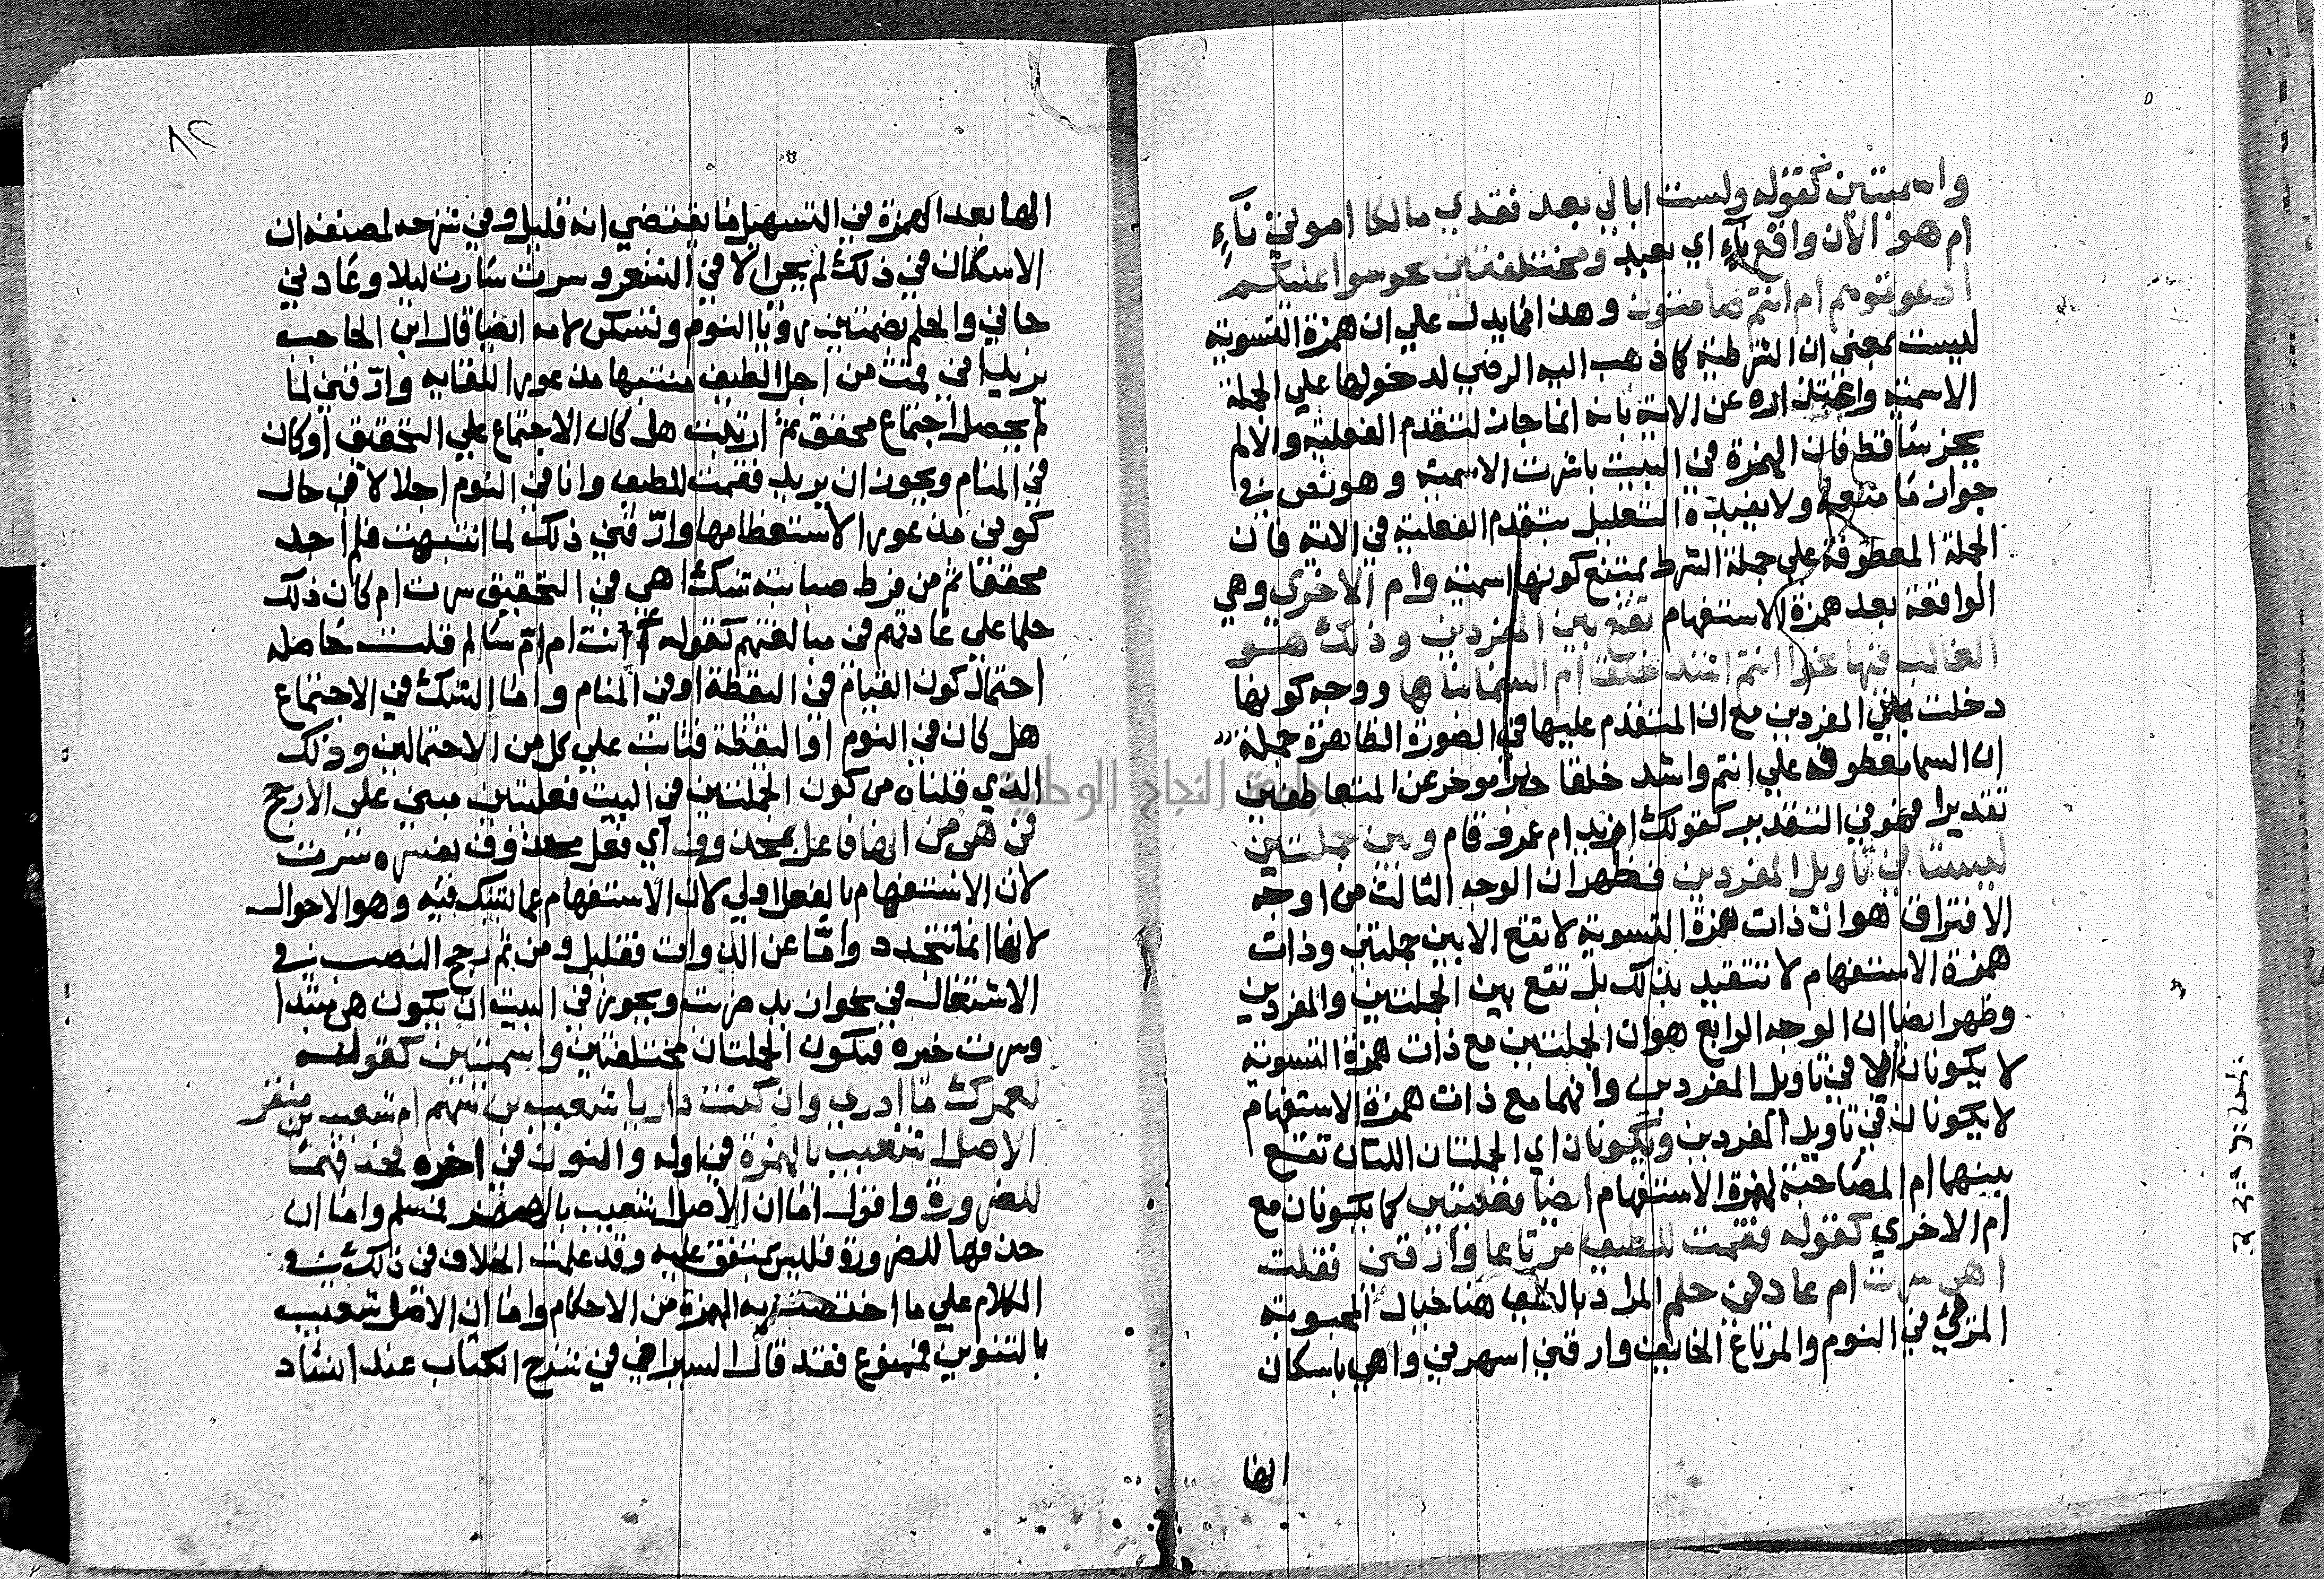 واسميتين كقوله ولست ابالي بعد فقدي مالكا اموتي ناء
ام هو الآن واقع ناء اي بعيد ومختلفتين نحو سوا عليكم
ادعوتموهم ام انتم صامتون وهذا مما يدل علي ان همزة التسوية
ليست بمعني ان الشرطية كما ذهب اليه الرضي لدخولها علي الجملة
الاسمية واعتذاره عن الاية بانه انما جاز لتقدم الفعلية والا لم
يجز ساقط فان الهمزة في البيت باشرت الاسمية وهو نص في
جواز ما منعه ولا يفيده التعليل بتقدم الفعلية في الاية فان
الجملة المعطوفة علي جملة الشرط يمتنع كونها اسمية وام الاخري وهي
الواقعة بعد همزة الاستفهام تقع بين المفردين وذلك هو
الغالب فيها نحو اانتم اشد خلقا ام السما بناها ووجه كونها
دخلت بين المفردين مع ان المتقدم عليها في الصورة الظاهرة جملة
ان السما معطوفة علي انتم واشد خلقا خبر موخر عن المتعاطفين
تقديرا فهو في التقدير كقولك ازيد ام عمرو قام وبين جملتين
ليستا في تاويل المفردين فظهر ان الوجه الثالث من اوجه
الافتراق هو ان ذات همزة التسوية لا تقع الا بين جملتين وذات
همزة الاستفهام لا تتقيد بذلك بل تقع بين الجملتين والمفردين
وظهر ايضا ان الوجه الرابع هو ان الجملتين مع ذات همزة التسوية
لا يكونان الا في تاويل المفردين وانهما مع ذات همزة الاستفهام
لا يكونان في تاويل المفردين وتكونان اي الجملتان اللتان تقع
بينهما ام المصاحبة لهمزة الاستفهام ايضا فعليتين كما يكونان مع
ام الاخري كقوله فقمت للطيف مرتاعا وارقني فقلت
اهي سرت ام عادني حلم المراد بالطيف هنا خيال المحبوبة
المرئي في النوم والمرتاع الخائف وارقني اسهرني واهي باسكان
الها
٨٢
الها بعد الهمزة في التسهيل ما يقتضي انه قليل وفي شرحه لمصنفه ان
الاسكان في ذلك لم يجئ الا في الشعر وسرت سارت ليلا وعادني
جاني والحلم بضمتين رويا النوم وتسكن لامه ايضا قال ابن الحاجب
يريد اني قمت من اجل الطيف منتبها مذعورا للقايه وارقني لما
لم يحصل اجتماع محقق ثم ارتبت هل كان الاجتماع علي التحقيق او كان
في المنام ويجوز ان يريد فقمت للطيف وانا في النوم اجلالا في حال
كوني مذعورا لاستعظامها وارقني ذلك لما انتبهت فلم اجد
محققا ثم من فرط صبابته شك اهي في التحقيق سرت ام كان ذلك
حلما علي عادتهم في مبالغتهم كقوله اانت ام ام سالم قلت حاصله
احتمال كون القيام في اليقظة او في المنام واما الشك في الاجتماع
هل كان في النوم او اليقظة فثابت علي كل من الاحتمالين وذلك
الذي قلناه من كون الجملتين في البيت فعليتين مبني علي الارجح
في هي من انها فاعل بمحذوف اي فعل محذوف يفسره سرت
لان الاستفهام بالفعل اولي لان الاستفهام عما يشك فيه وهو الاحوال
لانها انما تتجدد واما عن الذوات فقليل ومن ثم رجح النصب في
الاشتغال في نحو ازيدا ضربت ويجوز في البيت ان يكون هي مبتدا
وسرت خبره فيكون الجملتان مختلفتين واسميتين كقوله
لعمرك ما ادري وان كنت داريا شعيب بن سهم ام شعيب بن منقر
الاصل اشعيب بالهمزة في اوله والتنوين في اخره فحذفهما
للضرورة واقول اما ان الاصل اشعيب بالهمز فمسلم واما ان
حذفها للضرورة فليس بمتفق عليه وقد علمت الخلاف في ذلك في
الكلام علي ما اختصت به الهمزة من الاحكام واما ان الاصل شعيب
بالتنوين فممنوع فقد قال السيرافي في شرح الكتاب عند انشاد
جامعة النجاح الوطنية